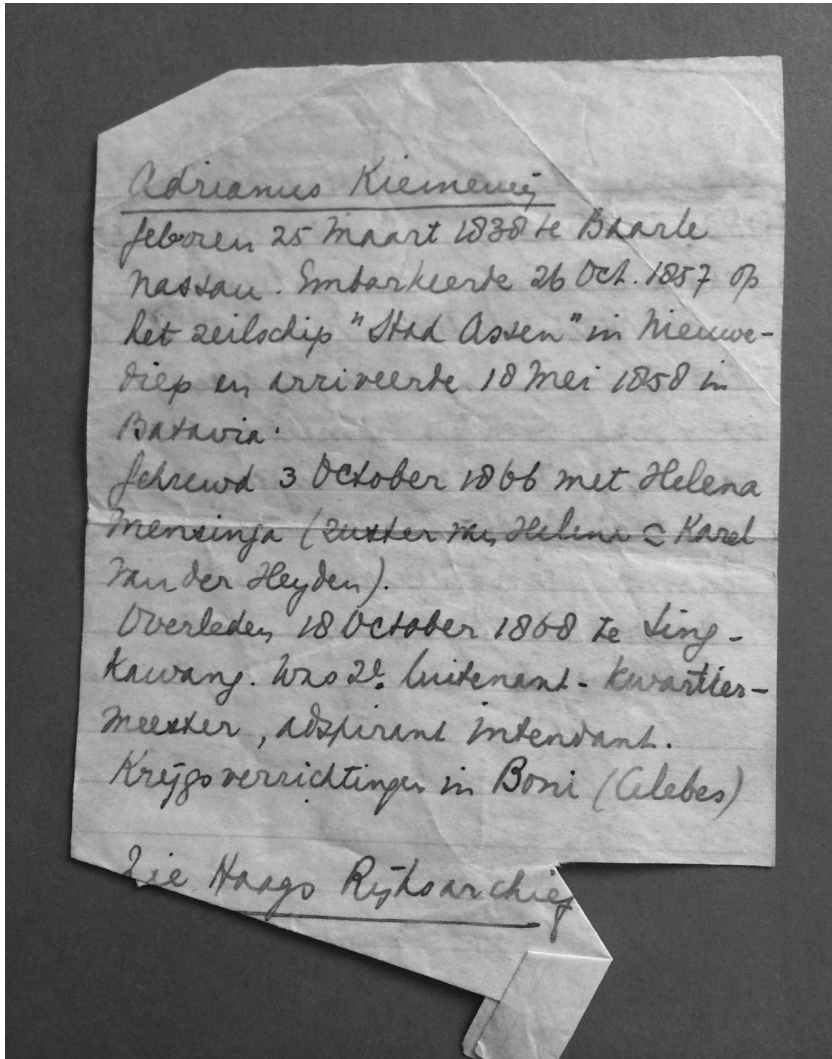 Adrianus Kiemeneij
geboren 25 Maart 1838 te Baarle
Nassau. Embarkeerde 26 Oct. 1857 op
het zeilschip "Stad Assen" in Nieuwe-
diep en arriveerde 18 Mei 1858 in
Batavia.
gehuwd 3 October 1866 met Helena
Mensinga (zuster van Helina Karel
van der Heyden).
Overleden 18 October 1868 te Sing-
kawang. Was 2e. luitenant-kwartier-
meester, adspirant intendant.
Krijgsverrichtingen in Boni (Celebes)
Zie Haags Rijksarchief